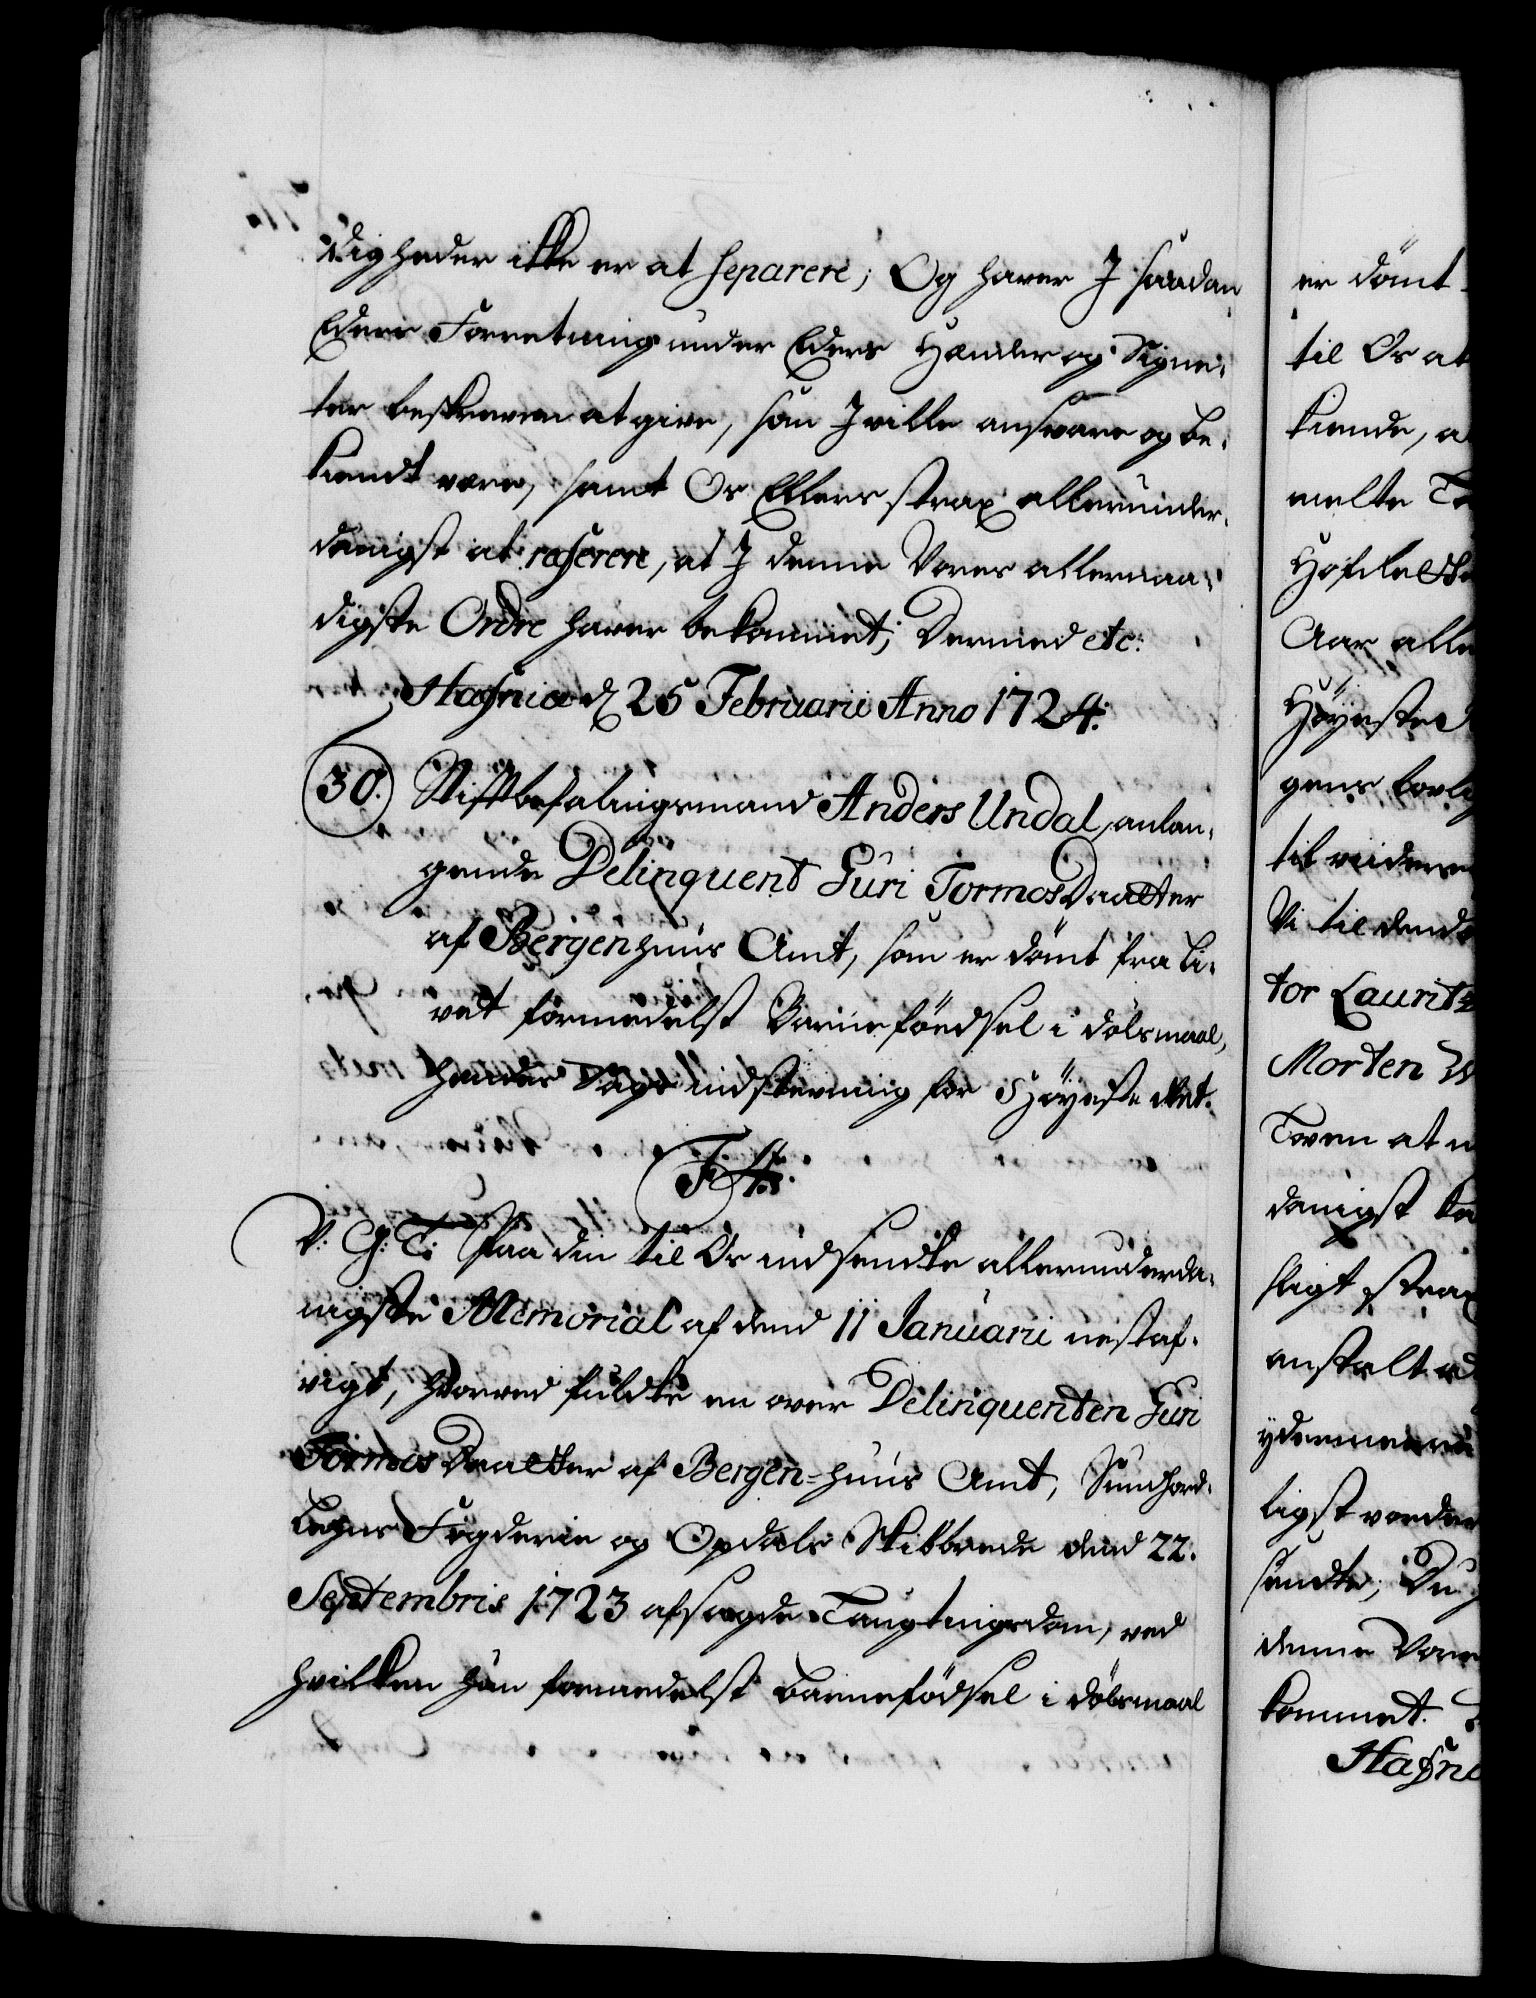 digheder ikke er at separere; Og haver J saadan
Eders Forretning under Eders Hænder og Signe-
ter beskreven at give, som J ville ansvare og be-
kiendt være, samt Os Ellers strax allerunder-
danigst at referere, at J denne Vores allernaa-
digste Ordre haver bekommet; Dermed etc:
Hafniæ d 25 Februarii Anno 1724.
30. Stiftbefalingsmand Anders Undal, anlan-
gende Delinquent Guri Tormos Daatter
af Bergenhuus Amt, som er dömt fra Li-
vet formedelst Barneföedsel i dölsmaal,
hendes Sags indstevning for Höyeste Ret.
F 4.
V: G: T: Paa din til Os indsendte allerunderda-
nigste Memorial af dend 11 Januarii nestaf-
vigt, hvorved fuldte en over Delinquenten Guri
Tormos Daatter af Bergen-huus Amt, Sundhord-
Lehns Fogderie og Opdals Skibbrede dend 22.
Septembris 1723 afsagde Laugtingsdom, ved
hvilken hun formedelst Barnefödsel i dölsmaal
er dömt
til Os at
kiende, a
melte
Hofslette
Aar alle
Höyeste
gens lovlig
til videre
Vi til dend
tor Lauritz
Morten W
Loven at
danigst
sligt strax
anstalt
ydermeere
ligst vorder
sendte; Du
denne Vores
kommet.
Hafni